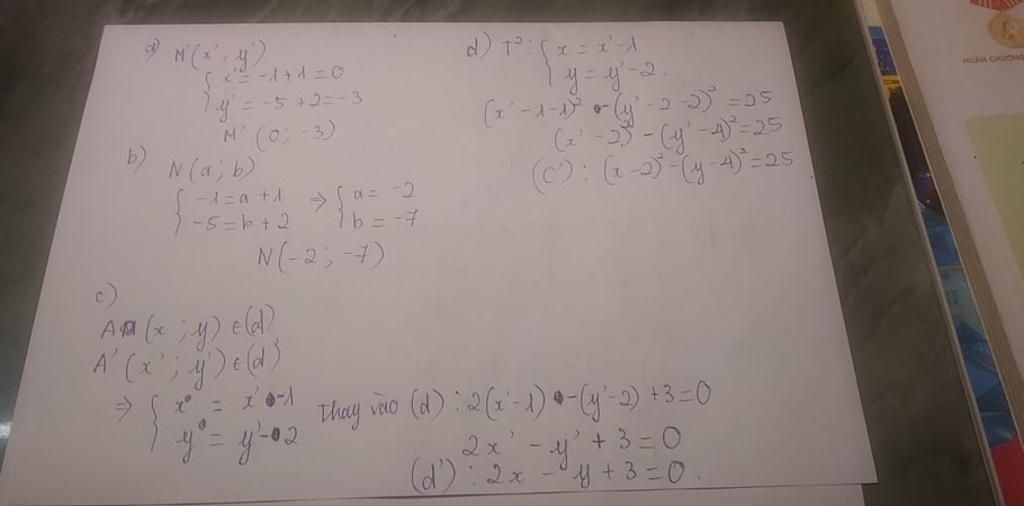 a) M'(x'; y')
{ x' = -1 + 1 = 0
y' = -5 + 2 = -3
M' (0; -3)
b) N(a; b)
{ -1 = a + 1 ⇒ { a = -2
-5 = b + 2 b = -7
N(-2; -7)
c)
A (x ; y) ∈ (d)
A' (x' ; y') ∈ (d')
⇒ { x = x' - 1
y = y' - 2
Thay vào (d) : 2(x' - 1) - (y' - 2) + 3 = 0
2x' - y' + 3 = 0
(d') : 2x - y + 3 = 0.
d) T²: { x = x' - 1
y = y' - 2.
(x' - 1 - 1)² - (y' - 2 - 2)² = 25
(x' - 2)² - (y' - 4)² = 25
(C') : (x - 2)² - (y - 4)² = 25
HUÂN CHƯƠNG